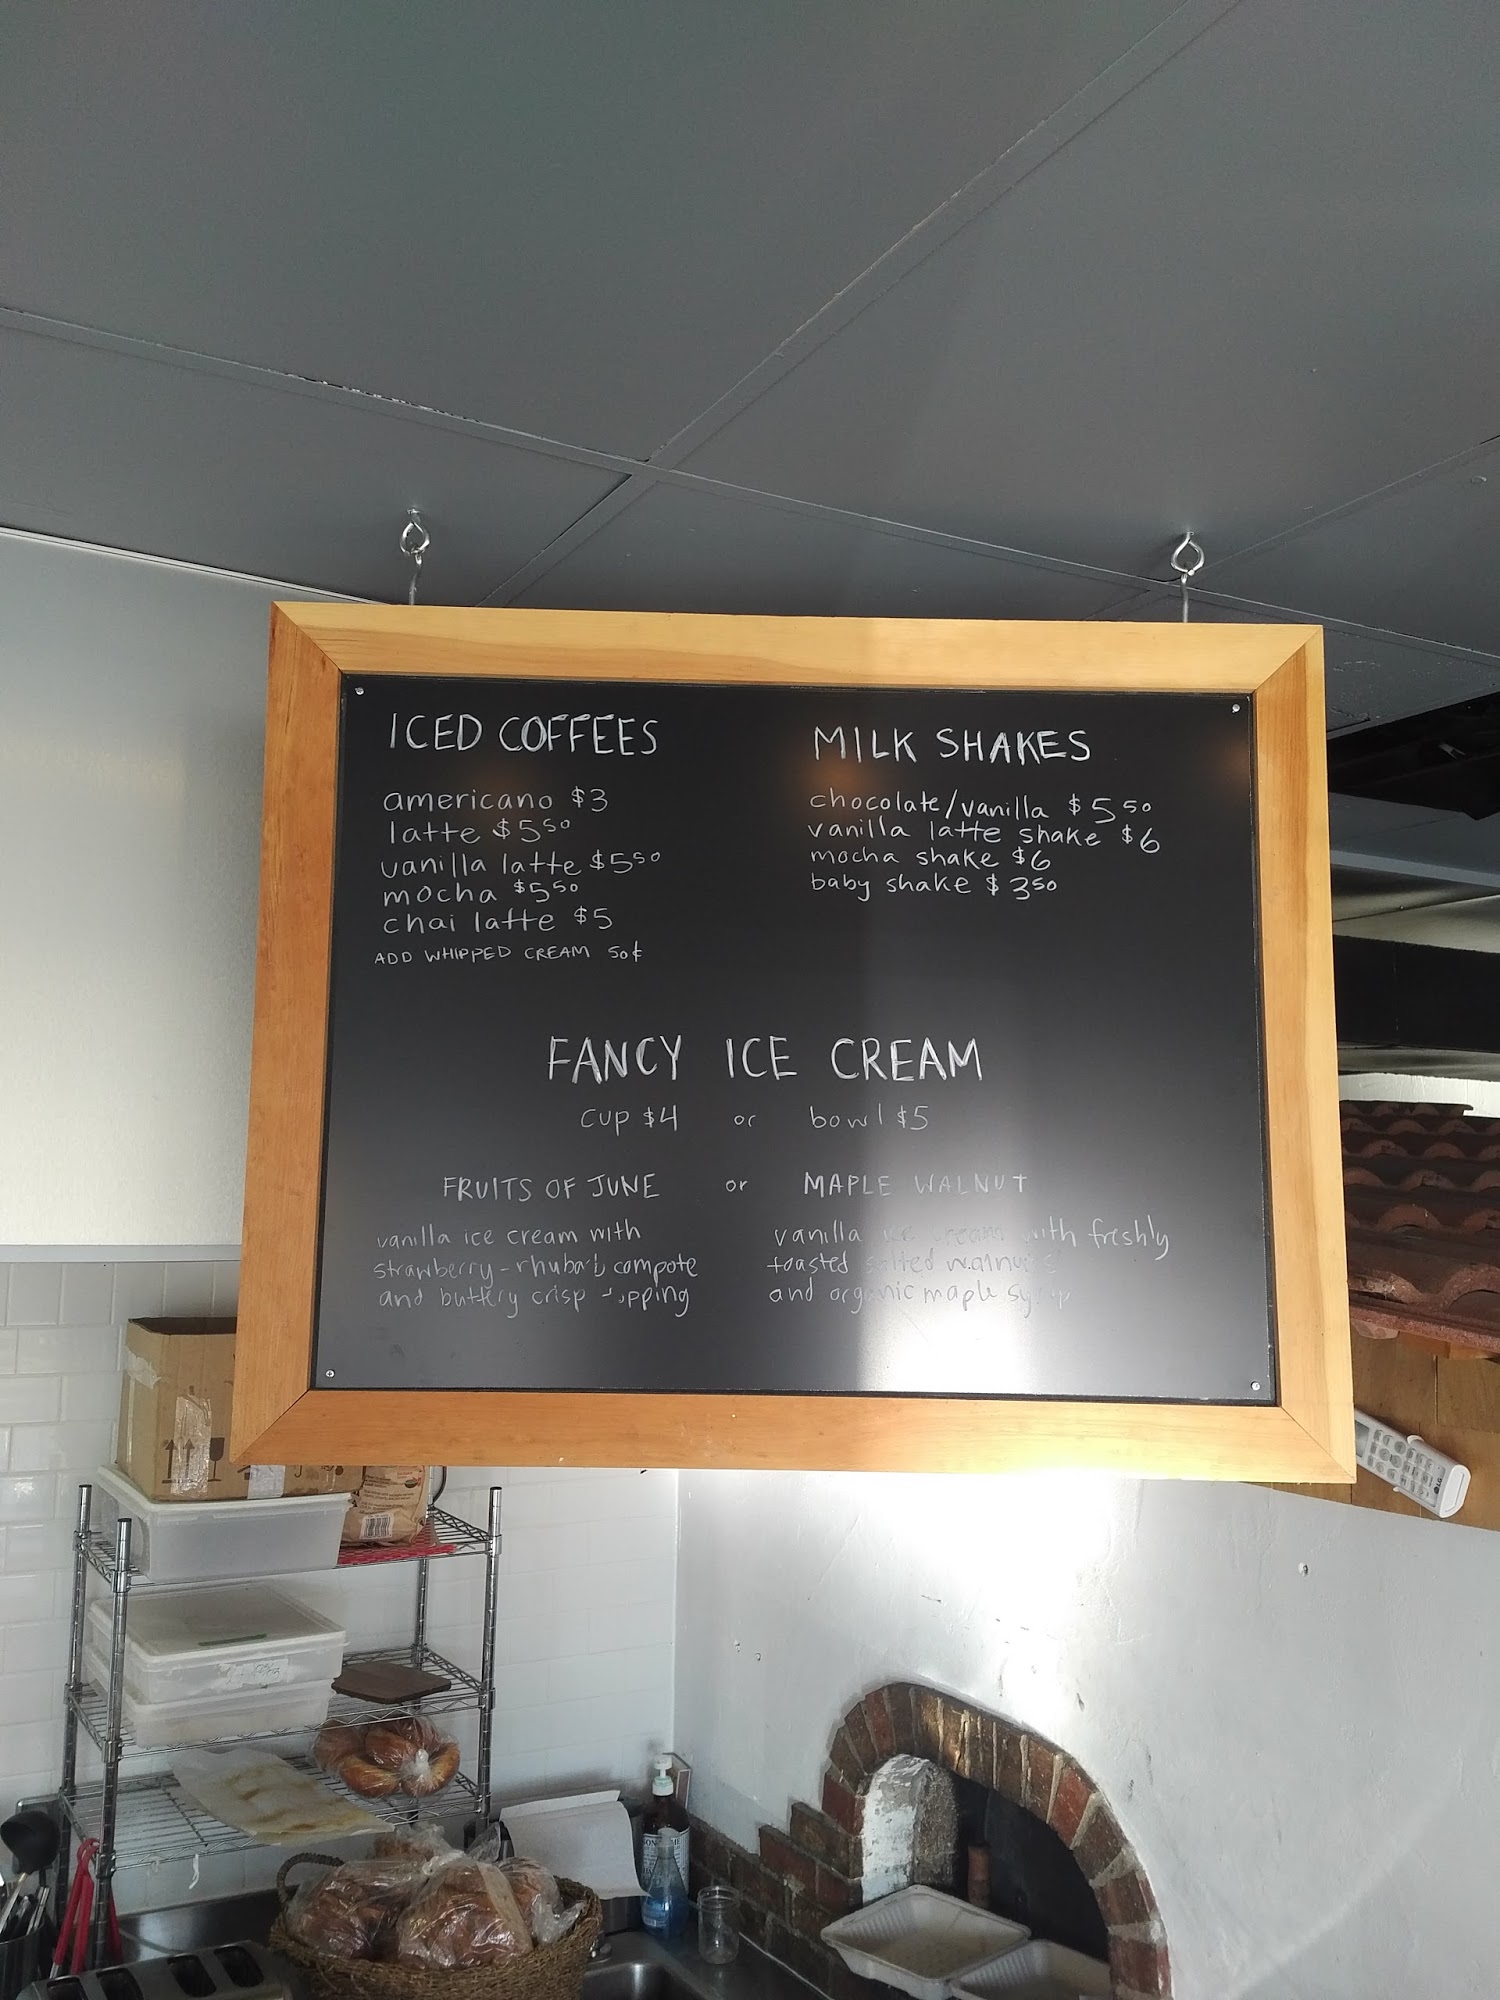 ICED COFFEES
americano $3
latte $5 50
vanilla latte $5 50
mocha $5 50
chai latte $5
ADD WHIPPED CREAM 50¢
MILK SHAKES
chocolate/vanilla $5 50
vanilla latte shake $6
mocha shake $6
baby shake $3 50
FANCY ICE CREAM
cup $4 or bowl $5
FRUITS OF JUNE or MAPLE WALNUT
vanilla ice cream with
strawberry-rhubarb compote
and buttery crisp topping
vanilla ice cream with freshly
toasted salted walnuts
and organic maple syrup
LG